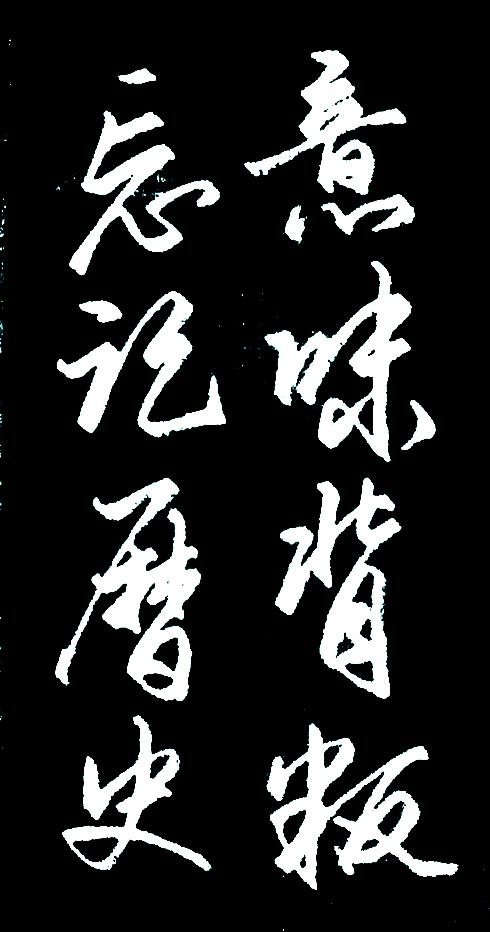 忘记曆史
意味背叛